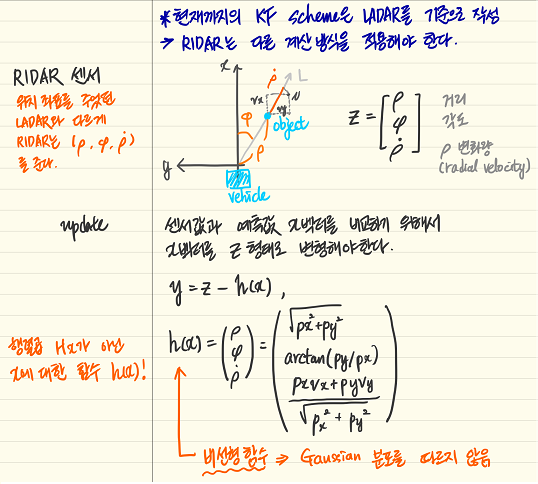 * 현재까지의 KF scheme은 LADAR를 기준으로 작성
→ RIDAR는 다른 계산 방식을 적용해야 한다.
RIDAR 센서
위치 좌표를 주었던
LADAR와 다르게
RIDAR는 (ρ, φ, ρ̇)
를 준다.
x
ρ̇
L
vx
v
vy
φ
object
ρ
y
vehicle
z = [ρ φ ρ̇]
거리
각도
ρ 변화량
(radial velocity)
update
센서값과 예측값 x벡터를 비교하기 위해서
x벡터를 z 형태로 변형해야한다.
y = z - h(x),
행렬곱 Hx가 아닌
x에 대한 함수 h(x)!
h(x) = (ρ φ ρ̇) = (√px²+py²
arctan(py/px)
pxvx+pyvy
√px²+py²)
비선형 함수 ⇒ Gaussian 분포를 따르지 않음